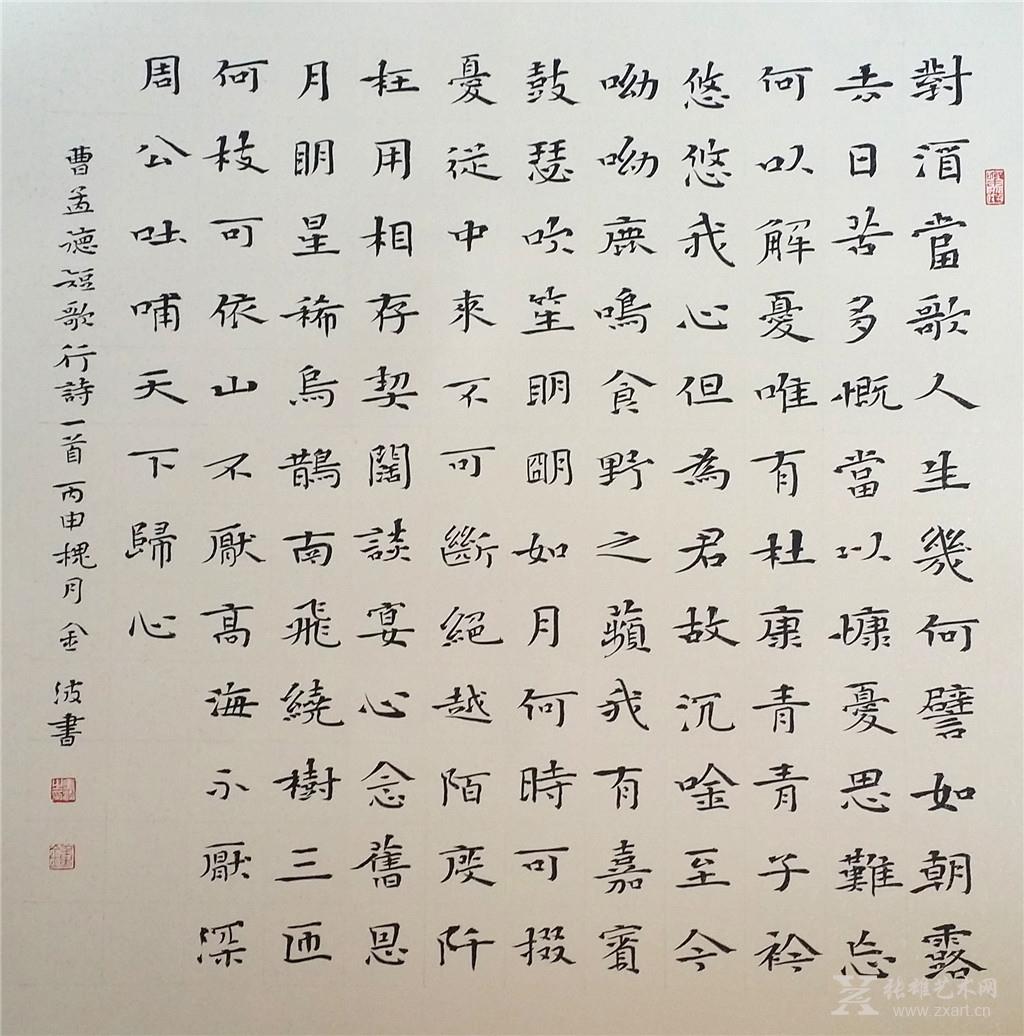 對酒當歌人生幾何譬如朝露
去日苦多慨當以慷憂思難忘
何以解憂唯有杜康青青子衿
悠悠我心但為君故沉唫至今
呦呦鹿鳴食野之蘋我有嘉賓
鼓瑟吹笙眀朙如月何時可掇
憂從中來不可斷絕越陌度阡
枉用相存契闊談宴心念舊恩
月眀星稀烏鵲南飛繞樹三匝
何枝可依山不厭高海不厭深
周公吐哺天下歸心
曹孟德短歌行詩一首 丙申槐月 金波書
张雄艺术网
www.zxart.cn